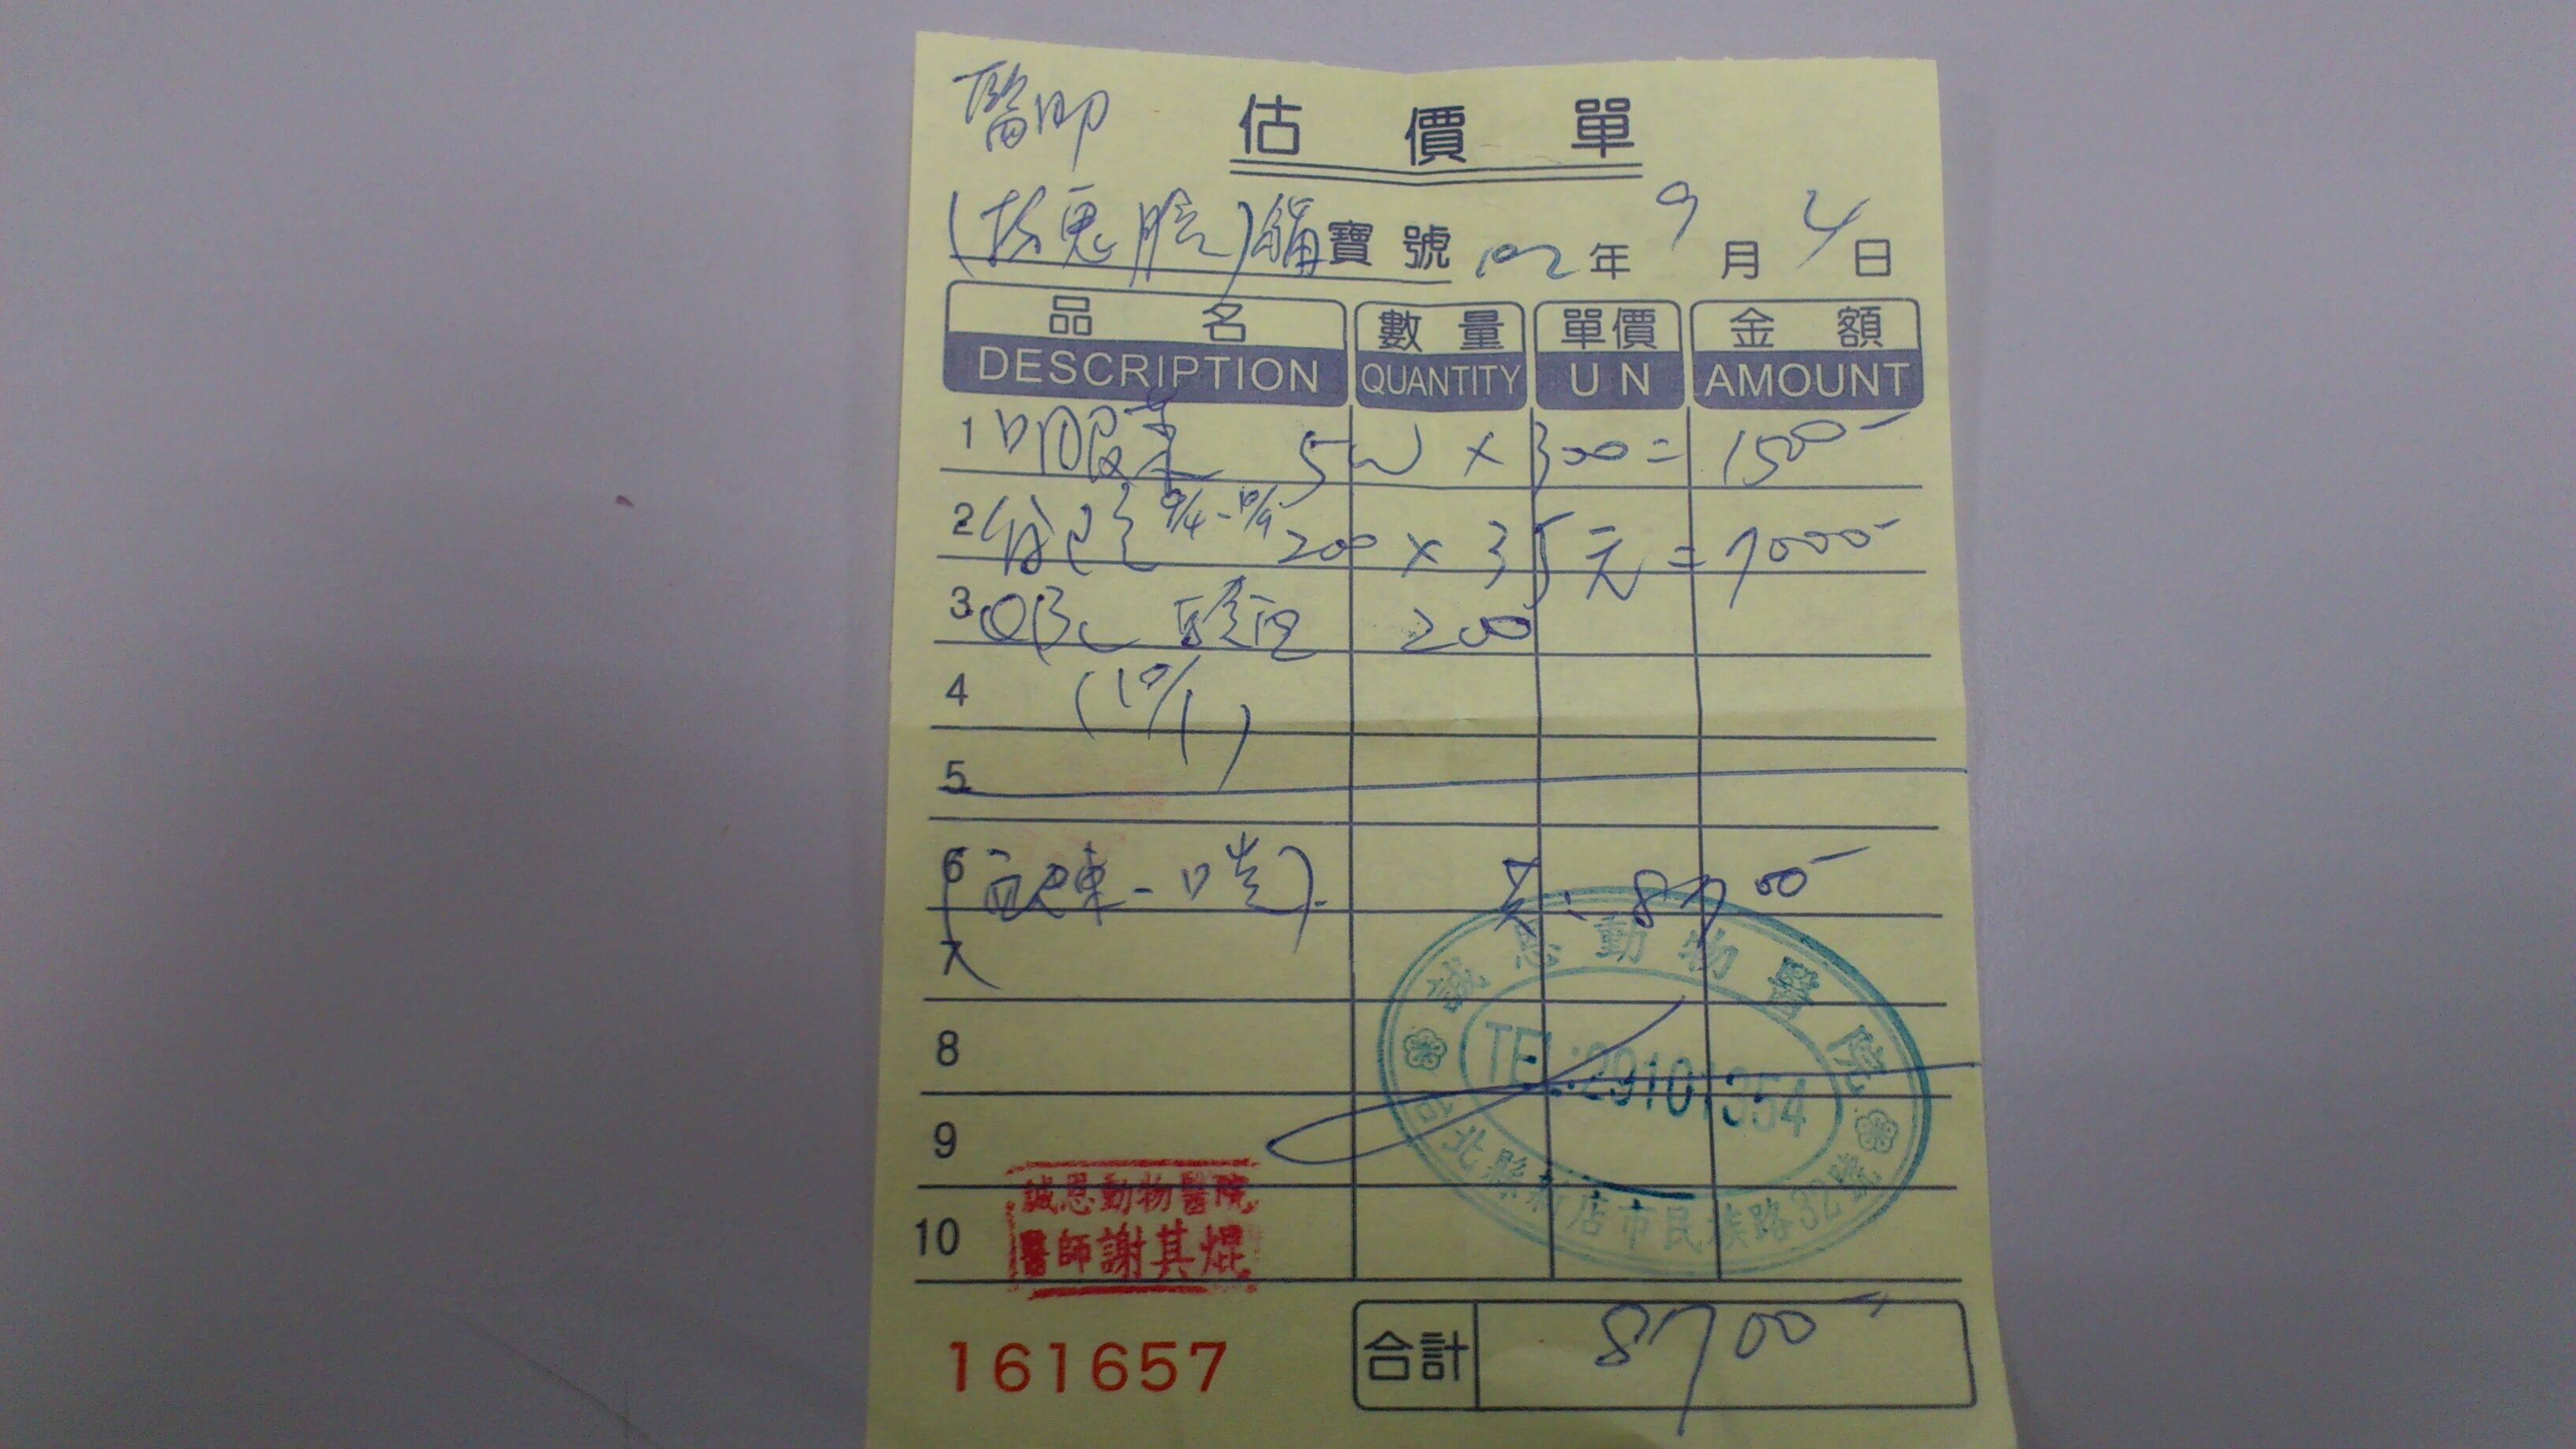 醫師 估價單
寶號 102年9月4日
品名 數量 單價 金額
DESCRIPTION QUANTITY UN AMOUNT
1 口服藥 5W × 300 = 1500
2 9/4-10/9 200 × 35元 = 7000
3 200
4 (10/1)
5
6 共: 8700
8
9
10
誠恩動物醫院
TEL:29101354
台北縣新店市民族路32號
誠恩動物醫院
醫師謝其焜
161657 合計 8700